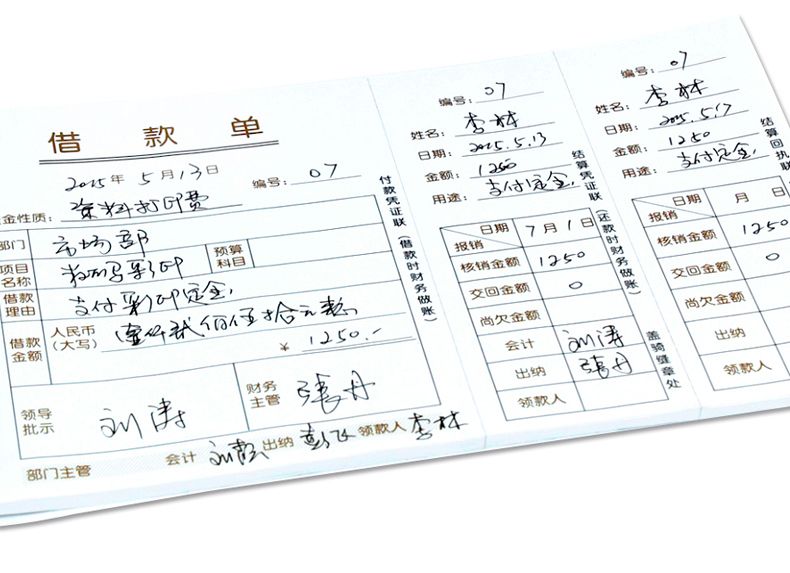 借款单
2015年5月13日 编号：07
金性质：资料打印费
部门 市场部
项目名称 彩印 预算科目
借款理由 支付彩印定金
借款金额 人民币(大写) 壹仟贰佰伍拾元整
¥ 1250.-
领导批示 刘涛 财务主管 張丹
部门主管 会计 出纳 彭飞 领款人 李林
付款凭证联（借款时财务做账）
编号：07
姓名：李林
日期：2015.5.13
金额：1250
用途：支付定金
日期 报销 7月1日
核销金额 1250
交回金额 0
尚欠金额
会计 刘涛
出纳 張丹
领款人
结算凭证联（还款时财务做账）
盖骑缝章处
编号：07
姓名：李林
日期：2015.5.17
金额：1250
用途：支付定金
日期 报销 月 日
核销金额 1250
交回金额 0
尚欠金额
出纳
领款人
结算回执联